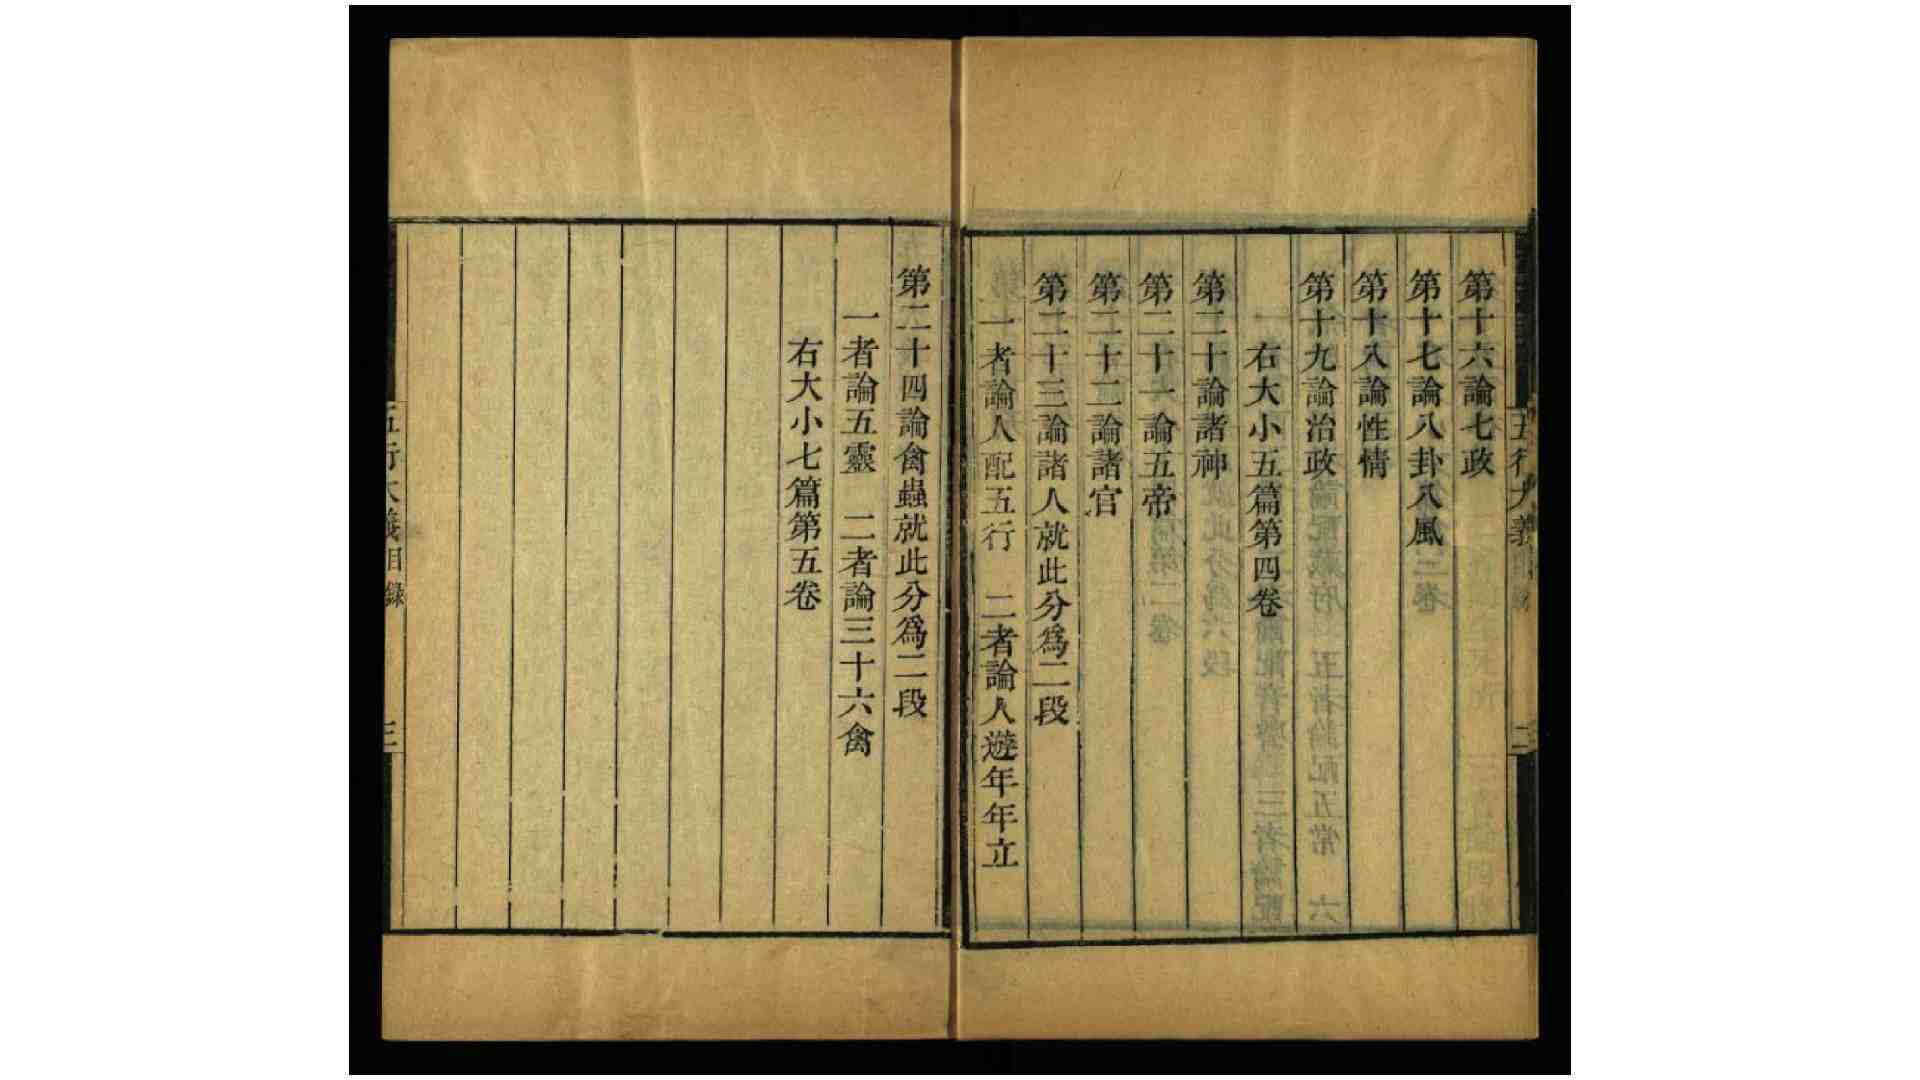 五行大義
二
第十六論七政
第十七論八卦八風
第十八論性情
第十九論治政
右大小五篇第四卷
第二十論諸神
第二十一論五帝
第二十二論諸官
第二十三論諸人就此分爲二段
一者論人配五行　二者論人遊年年立
第二十四論禽蟲就此分爲二段
一者論五靈　二者論三十六禽
右大小七篇第五卷
五行大義目錄
三